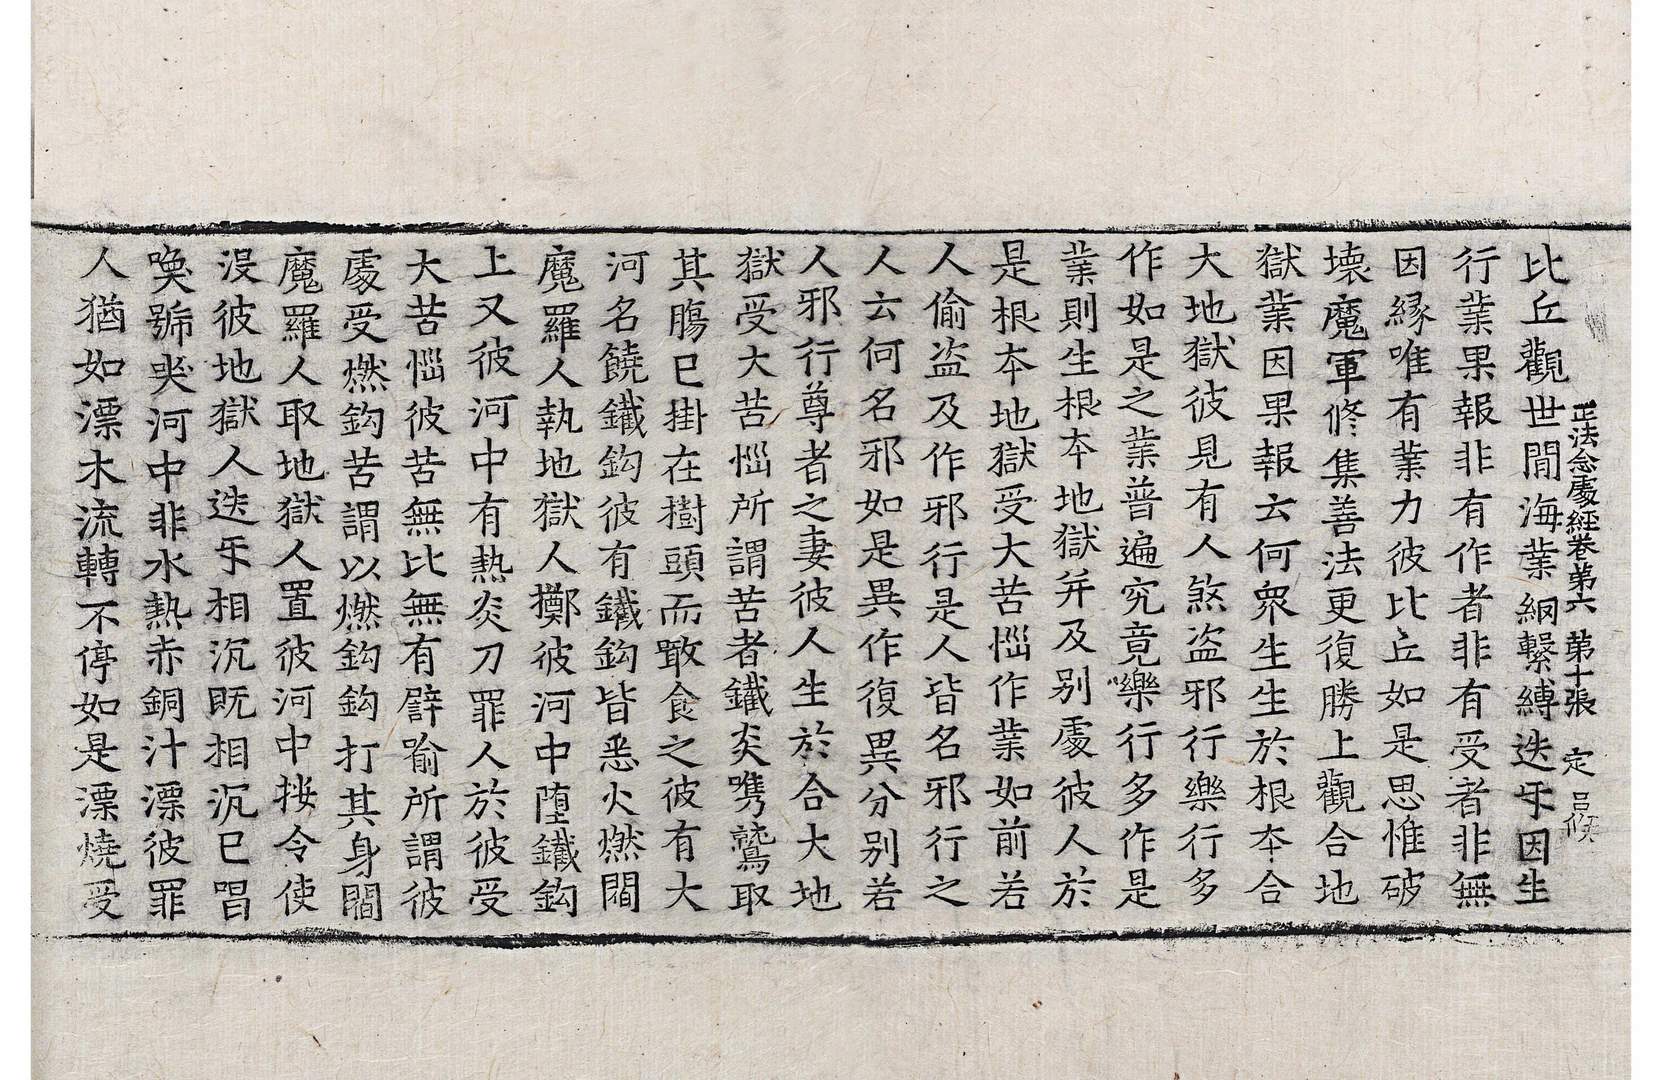 正法念處經卷第六 第十張 定 呂候
比丘觀世閒海業網繫縛迭㸦因生
行業果報非有作者非有受者非無
因緣唯有業力彼比丘如是思惟破
壞魔軍修集善法更復勝上觀合地
獄業因果報云何眾生生於根夲合
大地獄彼見有人煞盜邪行樂行多
作如是之業普遍究竟樂行多作是
業則生根夲地獄并及別處彼人於
是根夲地獄受大苦惱作業如前若
人偷盜及作邪行是人皆名邪行之
人云何名邪如是異作復異分別若
人邪行尊者之妻彼人生於合大地
獄受大苦惱所謂苦者鐵炎嘴鷲取
其腸已掛在樹頭而噉食之彼有大
河名饒鐵鈎彼有鐵鈎皆悉火燃閻
魔羅人執地獄人擲彼河中墮鐵鈎
上又彼河中有熱炎刀罪人於彼受
大苦惱彼苦無比無有譬喻所謂彼
處受燃鈎苦謂以燃鈎鈎打其身閻
魔羅人取地獄人置彼河中挼令使
沒彼地獄人迭㸦相沉既相沉已唱
喚號哭河中非水熱赤銅汁漂彼罪
人猶如漂木流轉不停如是漂燒受